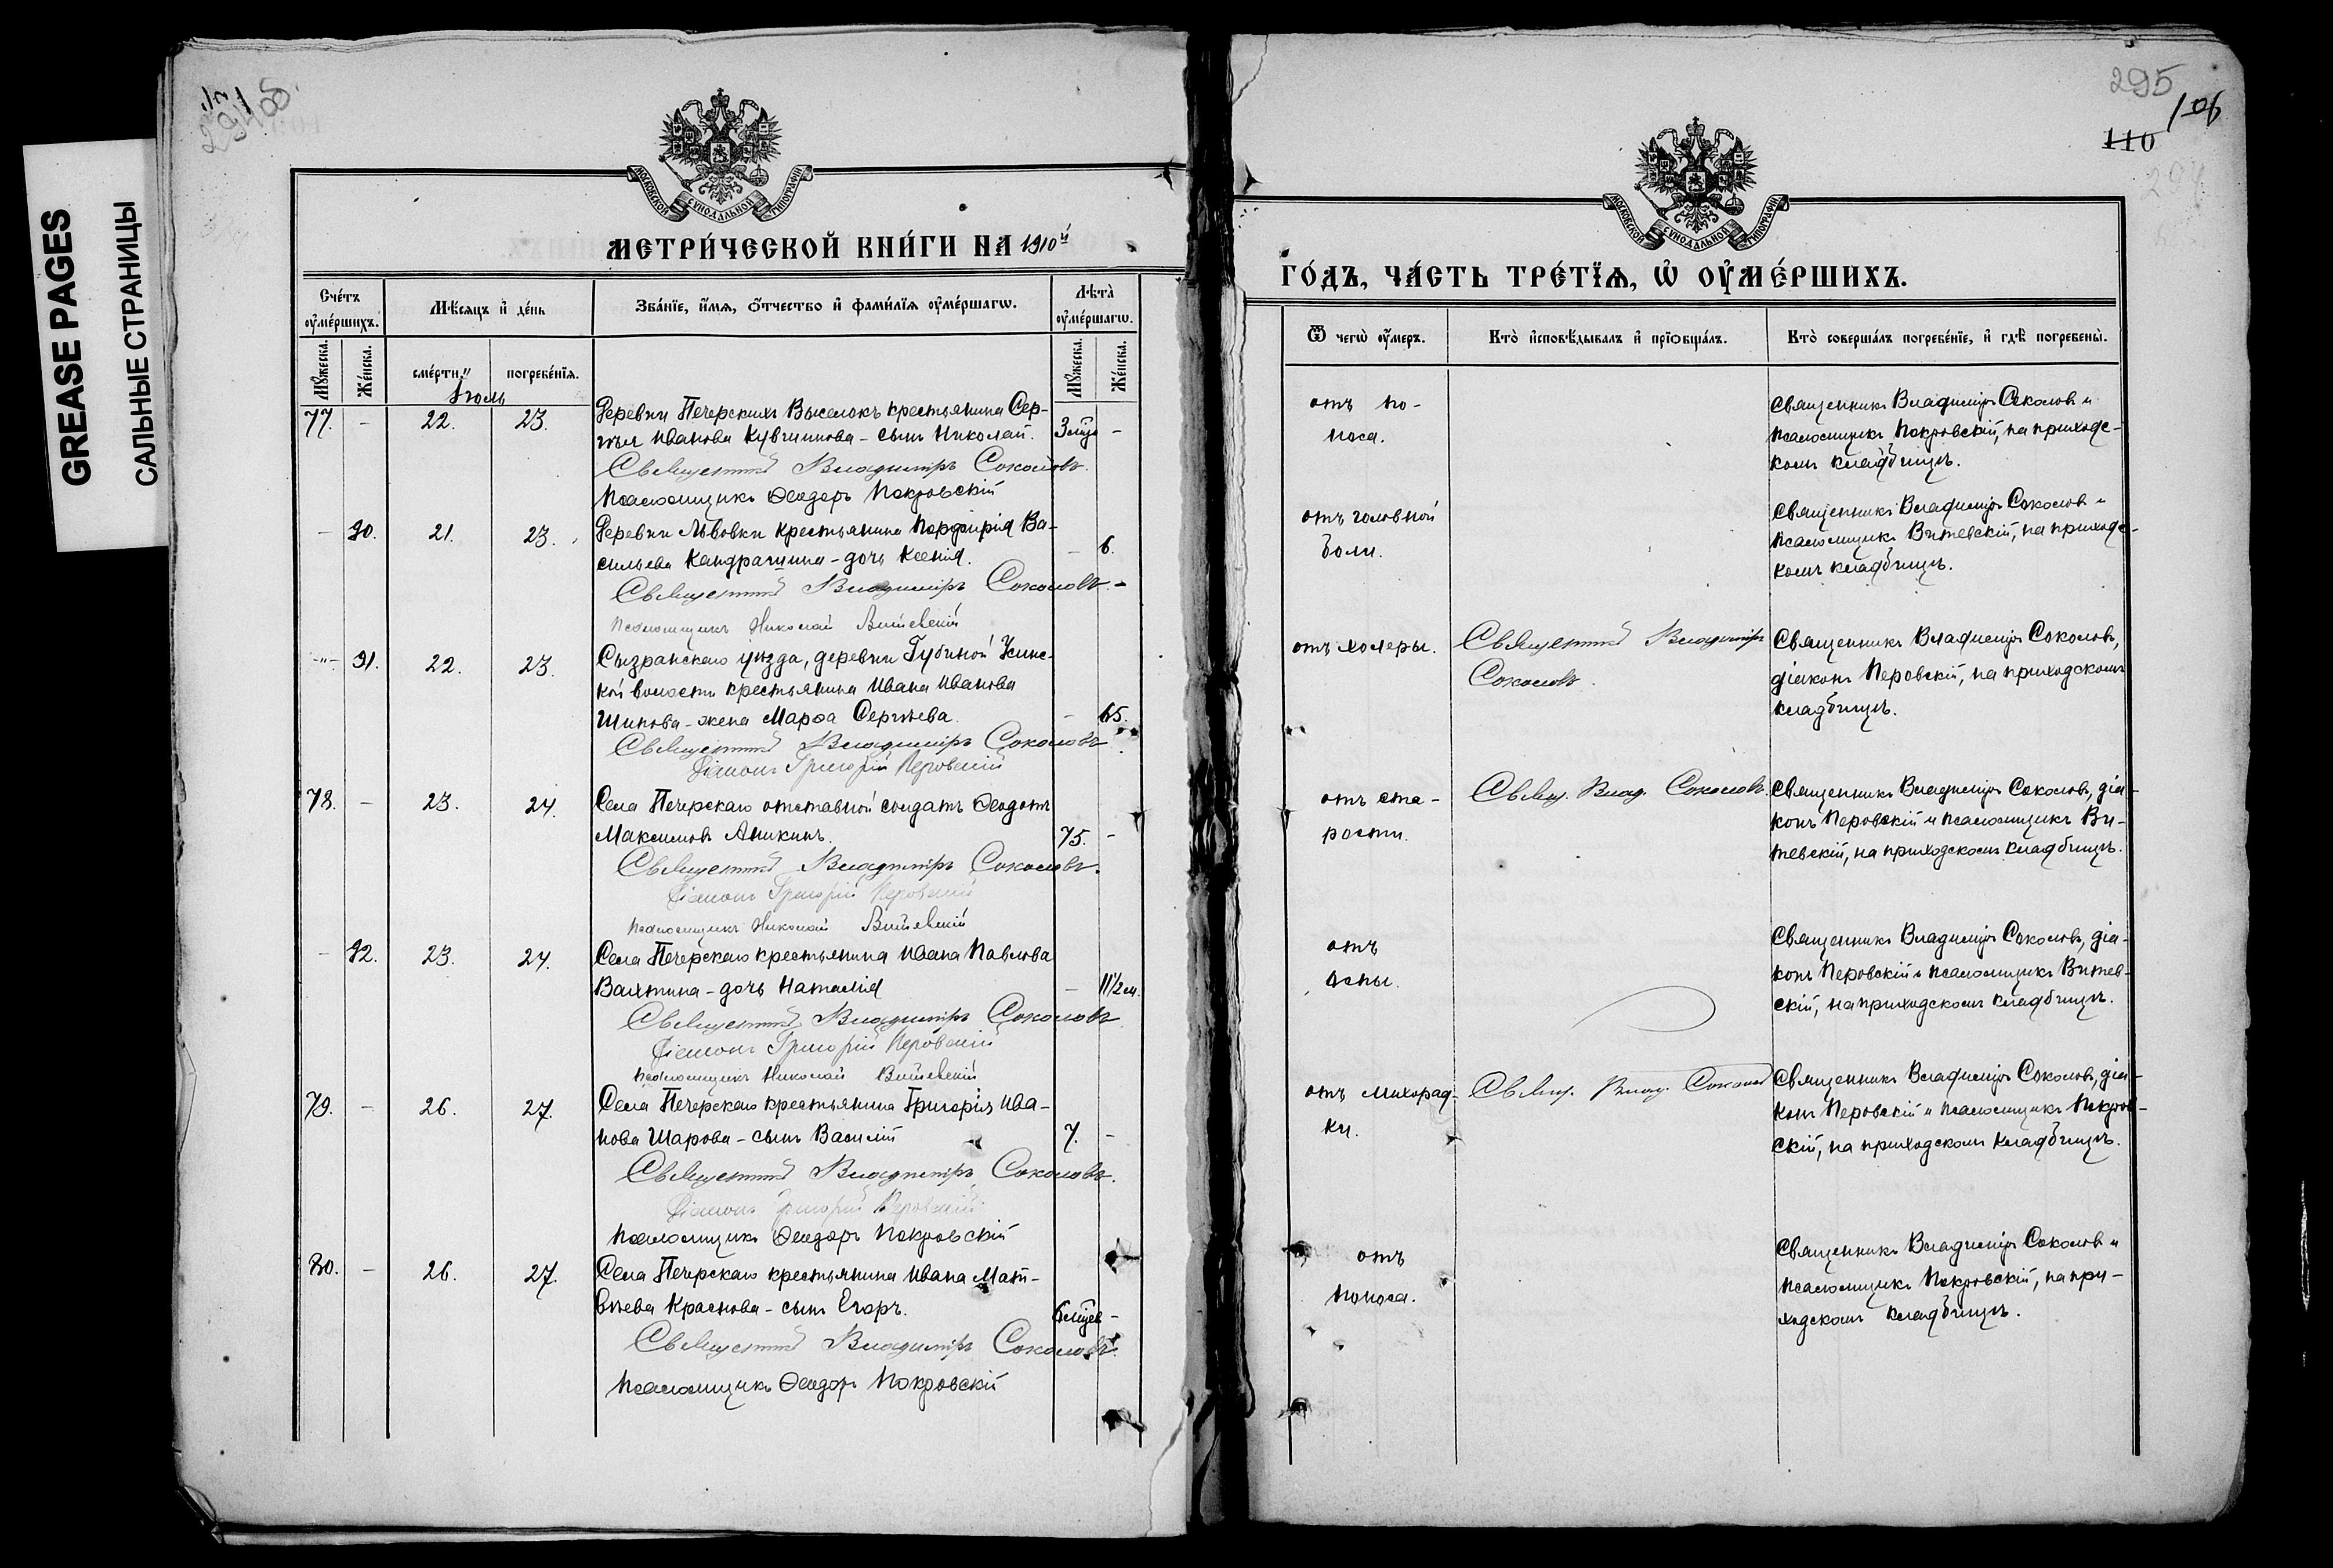 GREASE PAGES
САЛЬНЫЕ СТРАНИЦЫ
МОСКОВСКОЙ СУНОДАЛЬНОЙ ТИПОГРАФІИ
МЕТРИ́ЧЕСКОЙ КНИ́ГИ НА 1910й
Сче́тъ оу҆ме́ршихъ.
Мѣ́сяцъ и҆ де́нь
Зва́нїе, и҆́мѧ, ѻ҆́тчество и҆ фами́лїѧ оу҆ме́ршагѡ.
Лѣта̀ оу҆ме́ршагѡ.
Мꙋ́жеска.
Же́нска.
сме́рти.
погребе́нїѧ.
Мꙋ́жеска.
Же́нска.
Іюль
77. - 22. 23. Деревни Печерскихъ Выселокъ крестьянина Сер-
гѣя Иванова Кувшинова - сынъ Николай. 3 мѣц -
Священникъ Владиміръ Соколовъ.
Псаломщикъ Ѳеодоръ Покровскій
- 90. 21. 23. Деревни Львовки крестьянина Порфирія Ва-
сильева Кандрашина - дочь Ксенія. - 6.
Священникъ Владиміръ Соколовъ. -
Псаломщикъ Николай Витевскій
-"- 91. 22. 23. Сызранскаго уѣзда, деревни Губиной Усинс-
кой волости крестьянина Ивана Иванова
Шипова - жена Марѳа Сергѣева. - 65.
Священникъ Владиміръ Соколовъ
Діаконъ Григорій Перовскій
78. - 23. 24. Села Печерскаго отставной солдатъ Ѳеодотъ
Максимовъ Аникинъ. 75. -
Священникъ Владиміръ Соколовъ.
Діаконъ Григорій Перовскій
Псаломщикъ Николай Витевскій
- 92. 23. 24. Села Печерскаго крестьянина Ивана Павлова
Валятина - дочь Наталія - 1 1/2 м.
Священникъ Владиміръ Соколовъ
Діаконъ Григорій Перовскій
Псаломщикъ Николай Витевскій
79. - 26. 27. Села Печерскаго крестьянина Григорія Ива-
нова Шарова - сынъ Василій 7. -
Священникъ Владиміръ Соколовъ.
Діаконъ Григорій Перовскій
Псаломщикъ Ѳеодоръ Покровскій
80. - 26. 27. Села Печерскаго крестьянина Ивана Мат-
вѣева Краснова - сынъ Егоръ. 6 мѣцев -
Священникъ Владиміръ Соколовъ.
Псаломщикъ Ѳеодоръ Покровскій
295
106
110
МОСКОВСКОЙ СУНОДАЛЬНОЙ ТИПОГРАФІИ
ГО́ДЪ, ЧА́СТЬ ТРЕ́ТЇѦ, Ѡ҆ ОУ҆МЕ́РШИХЪ.
Ѿ чегѡ̀ оу҆́меръ.
Кто̀ и҆сповѣ́дывалъ и҆ прїѡбща́лъ.
Кто̀ соверша́лъ погребе́нїе, и҆ гдѣ̀ погребены̀.
отъ по-
носа.
Священникъ Владиміръ Соколовъ и
псаломщикъ Покровскій, на приходс-
комъ кладбищѣ.
отъ головной
боли.
Священникъ Владиміръ Соколовъ и
псаломщикъ Витевскій, на приходс-
комъ кладбищѣ.
отъ холеры.
Священникъ Владиміръ
Соколовъ.
Священникъ Владиміръ Соколовъ,
діаконъ Перовскій, на приходскомъ
кладбищѣ.
отъ ста-
рости.
Свящ. Влад. Соколовъ.
Священникъ Владиміръ Соколовъ, діа-
конъ Перовскій и псаломщикъ Ви-
тевскій, на приходскомъ кладбищѣ.
отъ
оспы.
Священникъ Владиміръ Соколовъ, діа-
конъ Перовскій и псаломщикъ Витев-
скій, на приходскомъ кладбищѣ.
отъ лихорад-
ки.
Свящ. Влад. Соколовъ
Священникъ Владиміръ Соколовъ, діа-
конъ Перовскій и псаломщикъ Покров-
скій, на приходскомъ кладбищѣ.
отъ
поноса.
Священникъ Владиміръ Соколовъ и
псаломщикъ Покровскій, на при-
ходскомъ кладбищѣ.